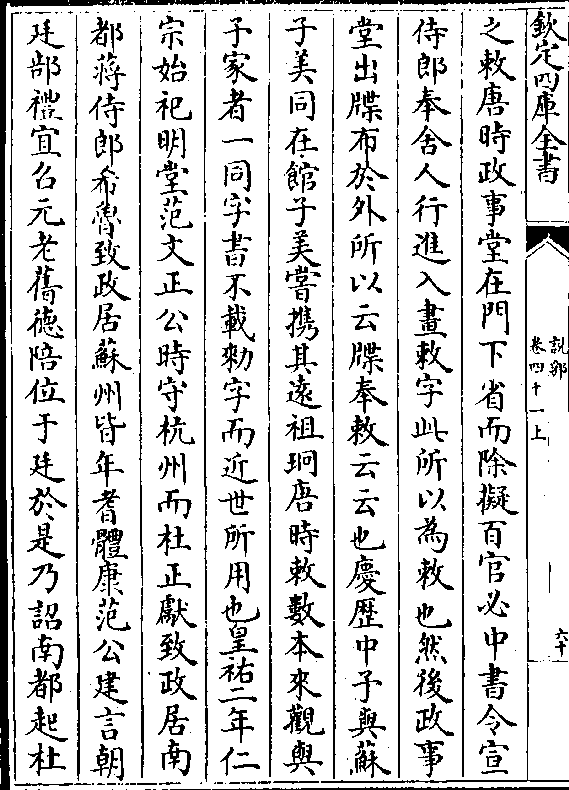 欽定四庫全書
說郛
卷四十一上
六十
之敕唐時政事堂在門下省而除擬百官必中書令宣
侍郎奉舍人行進入畫敕字此所以為敕也然後政事
堂出牒布於外所以云牒奉敕云云也慶歷中予與蘇
子美同在館子美嘗携其遠祖珦唐時敕數本來觀與
予家者一同字書不載勅字而近世所用也皇祐二年仁
宗始祀明堂范文正公時守杭州而杜正獻致政居南
都蔣侍郎希魯致政居蘇州皆年耆體康范公建言朝
廷郃禮宜召元老舊德陪位于廷於是乃詔南都起杜